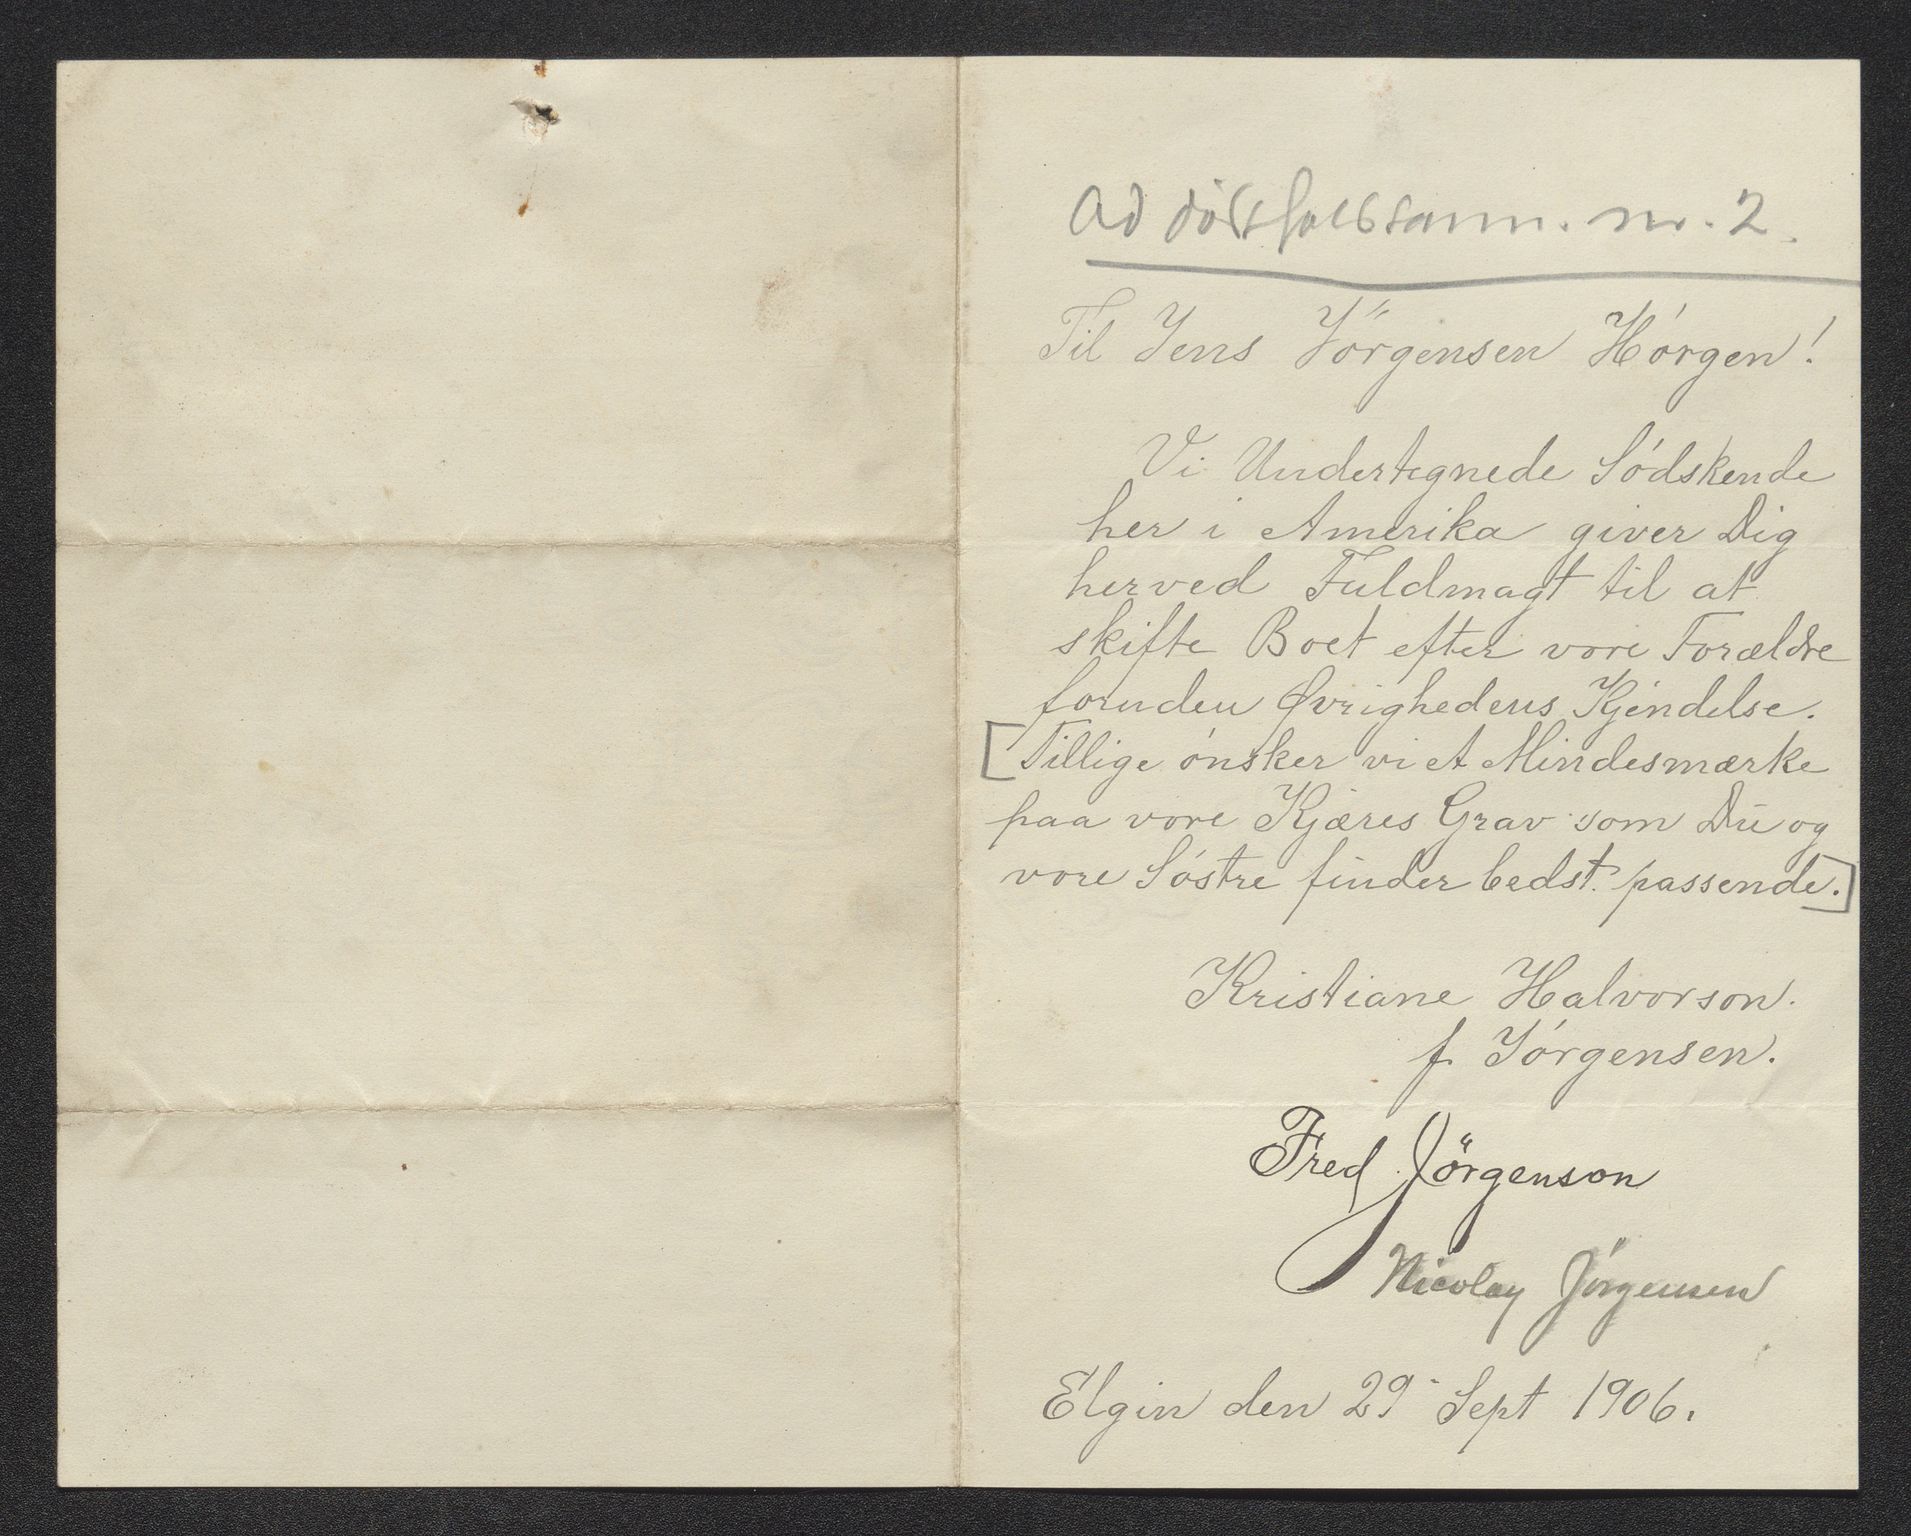 ad dödsfaldsanm. nr. 2.
Til Jens Jörgensen Hórgen!
Vi Undertegnede Sódskende
her i Amerika giver Dig
herved Fuldmagt til at
skifte Boet efter vore Forældre
foruden Øvrighedens Kjendelse.
[Tillige ónsker vi et Mindesmærke
paa vore Kjæres Grav som Du og
vore Sóstre finder bedst passende.]
Kristiane Halvorson.
f. Jórgensen.
Fred Jörgenson
Nicolay Jörgensen
Elgin den 29 Sept 1906.